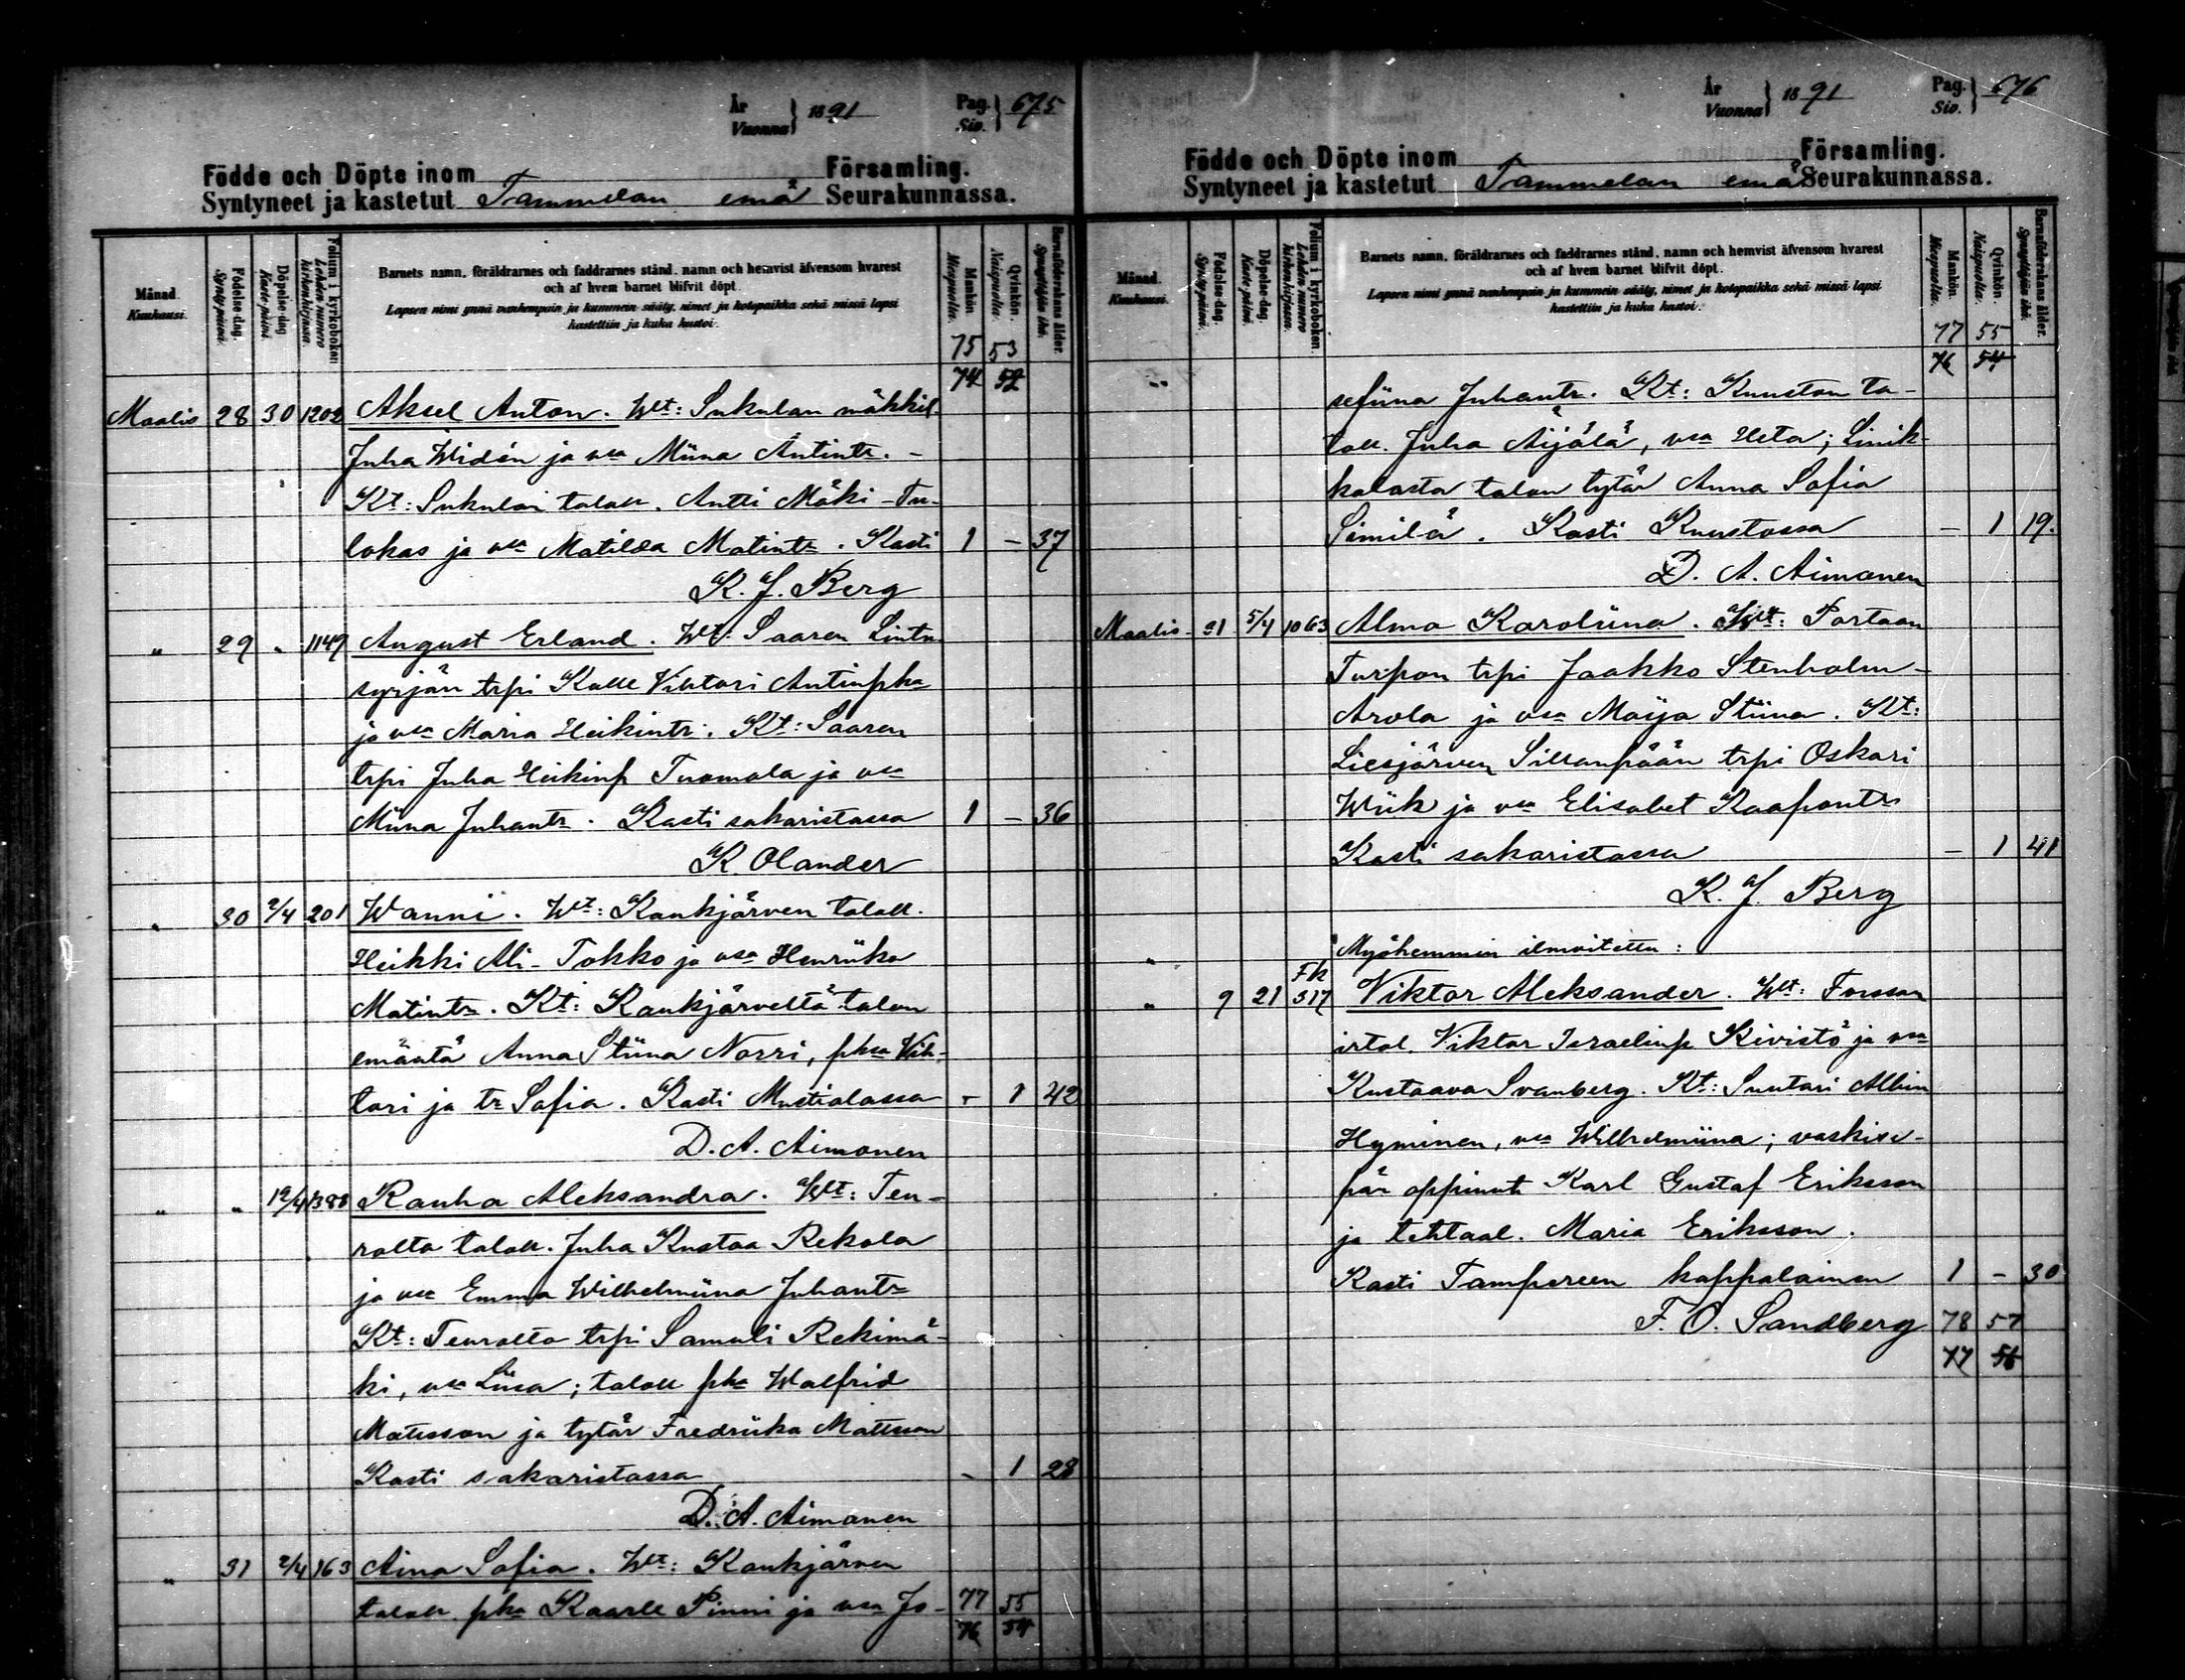 År
Vuonna } 1891
Pag.
Siv. } 675
Födde och Döpte inom Församling.
Syntyneet ja kastetut Tammelan emä Seurakunnassa.
Månad. Kuukausi.
Födelse-dag. Syntypäivä.
Döpelse-dag. Kaste-päivä.
Folium i kyrkoboken. Lehden numero kirkonkirjassa.
Barnets namn, föräldrarnes och faddrarnes stånd, namn och hemvist äfvensom hvarest
och af hvem barnet blifvit döpt.
Lapsen nimi ynnä vanhempain ja kummein sääty, nimet ja kotopaikka sekä missä lapsi
kastettiin ja kuka kastoi.
Mankön. Miespuolia.
Qvinkön. Naispuolia.
Barnaföderskans ålder. Synnyttäjän ikä.
75 53
74 52
Maalis 28 30 1202 Aksel Anton. Wt: Sukulan mäkkil.
Juha Widén ja vsa Miina Antintr. -
Kt: Sukulan talall. Antti Mäki-Tu-
lokas ja vsa Matilda Matintr. Kasti 1 - 37
K. J. Berg
" 29 " 1149 August Erland. Wt: Saaren Lintu
syrjän trpi Kalle Viktori Antinpka
ja vsa Maria Heikintr. Kt: Saaren
trpi Juha Heikinp Tuomola ja vsa
Miina Juhantr. Kasti sakaristassa 1 - 36
K. Olander
" 30 2/4 201 Wanni. Wt: Kaukjärven talall.
Heikki Ali-Tokko ja vsa Henriika
Matintr. Kt: Kaukjärveltä talon
emäntä Anna Stiina Norri, pka Vik-
tori ja tr Sofia. Kasti Mustialassa - 1 42
D. A. Aimonen
" " 12/4 1388 Rauha Aleksandra. Wt: Teu-
rolta talall. Juha Kustaa Rekola
ja vsa Emma Wilhelmiina Juhantr
Kt: Teurolta trpi Samuli Rekimä-
ki, vsa Liisa; talall pka Walfrid
Matsson ja tytär Fredriika Mattsson
Kasti sakaristassa - 1 28
D. A. Aimonen
" 31 2/4 163 Aina Sofia. Wt: Kaukjärven
talall. pka Kaarle Pinni ja vsa Jo- 77 55
76 54
År
Vuonna } 1891
Pag.
Siv. } 676
Födde och Döpte inom Församling.
Syntyneet ja kastetut Tammelan emä Seurakunnassa.
Månad. Kuukausi.
Födelse-dag. Syntypäivä.
Döpelse-dag. Kaste-päivä.
Folium i kyrkoboken. Lehden numero kirkonkirjassa.
Barnets namn, föräldrarnes och faddrarnes stånd, namn och hemvist äfvensom hvarest
och af hvem barnet blifvit döpt.
Lapsen nimi ynnä vanhempain ja kummein sääty, nimet ja kotopaikka sekä missä lapsi
kastettiin ja kuka kastoi.
Mankön. Miespuolia.
Qvinkön. Naispuolia.
Barnaföderskans ålder. Synnyttäjän ikä.
77 55
76 54
" sefiina Juhantr. Kt: Kuuston ta-
lall. Juha Äijälä, vsa Heta; Linik-
kalasta talon tytär Anna Sofia
Similä. Kasti Kuustossa - 1 19.
D. A. Aimonen
Maalis 31 5/4 1063 Alma Karoliina. Wt: Portaan
Turpon trpi Jaakko Stenholm-
Arola ja vsa Maija Stiina. Kt:
Liesjärven Sillanpään trpi Oskari
Wiik ja vsa Elisabet Kaapontr
Kasti sakaristassa - 1 41
K. J. Berg
" Myöhemmin ilmoitettu:
Fk
" 9 21 317 Viktor Aleksander. Wt: Forssan
irtol. Viktor Israelinp Kivistö ja vsa
Kustaava Svanberg. Kt: Suutari Albin
Hyminen, vsa Wilhelmiina; vaskise-
pän oppinut Karl Gustaf Eriksson
ja tehtaal. Maria Eriksson.
Kasti Tampereen kappalainen 1 - 30
F. O. Sandberg 78 57
77 56